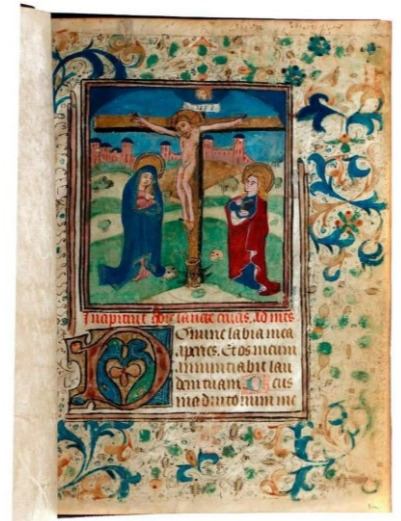 INRI
Incipiūt hore sancte crucis. Ad
Domine labia mea
aperies. Et os meum
annuntiabit lau
dem tuam. Deus
in adiutorium me